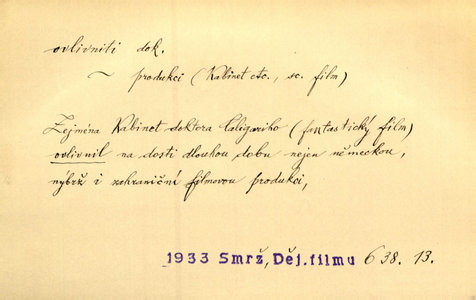 ovlivniti dok.
~ produkci (Kabinet etc., sc. film)
Zejména Kabinet doktora Caligariho (fantastický film)
ovlivnil na dosti dlouhou dobu nejen německou,
nýbrž i zahraniční filmovou produkci,
1933 Smrž, Děj. filmu 638. 13.